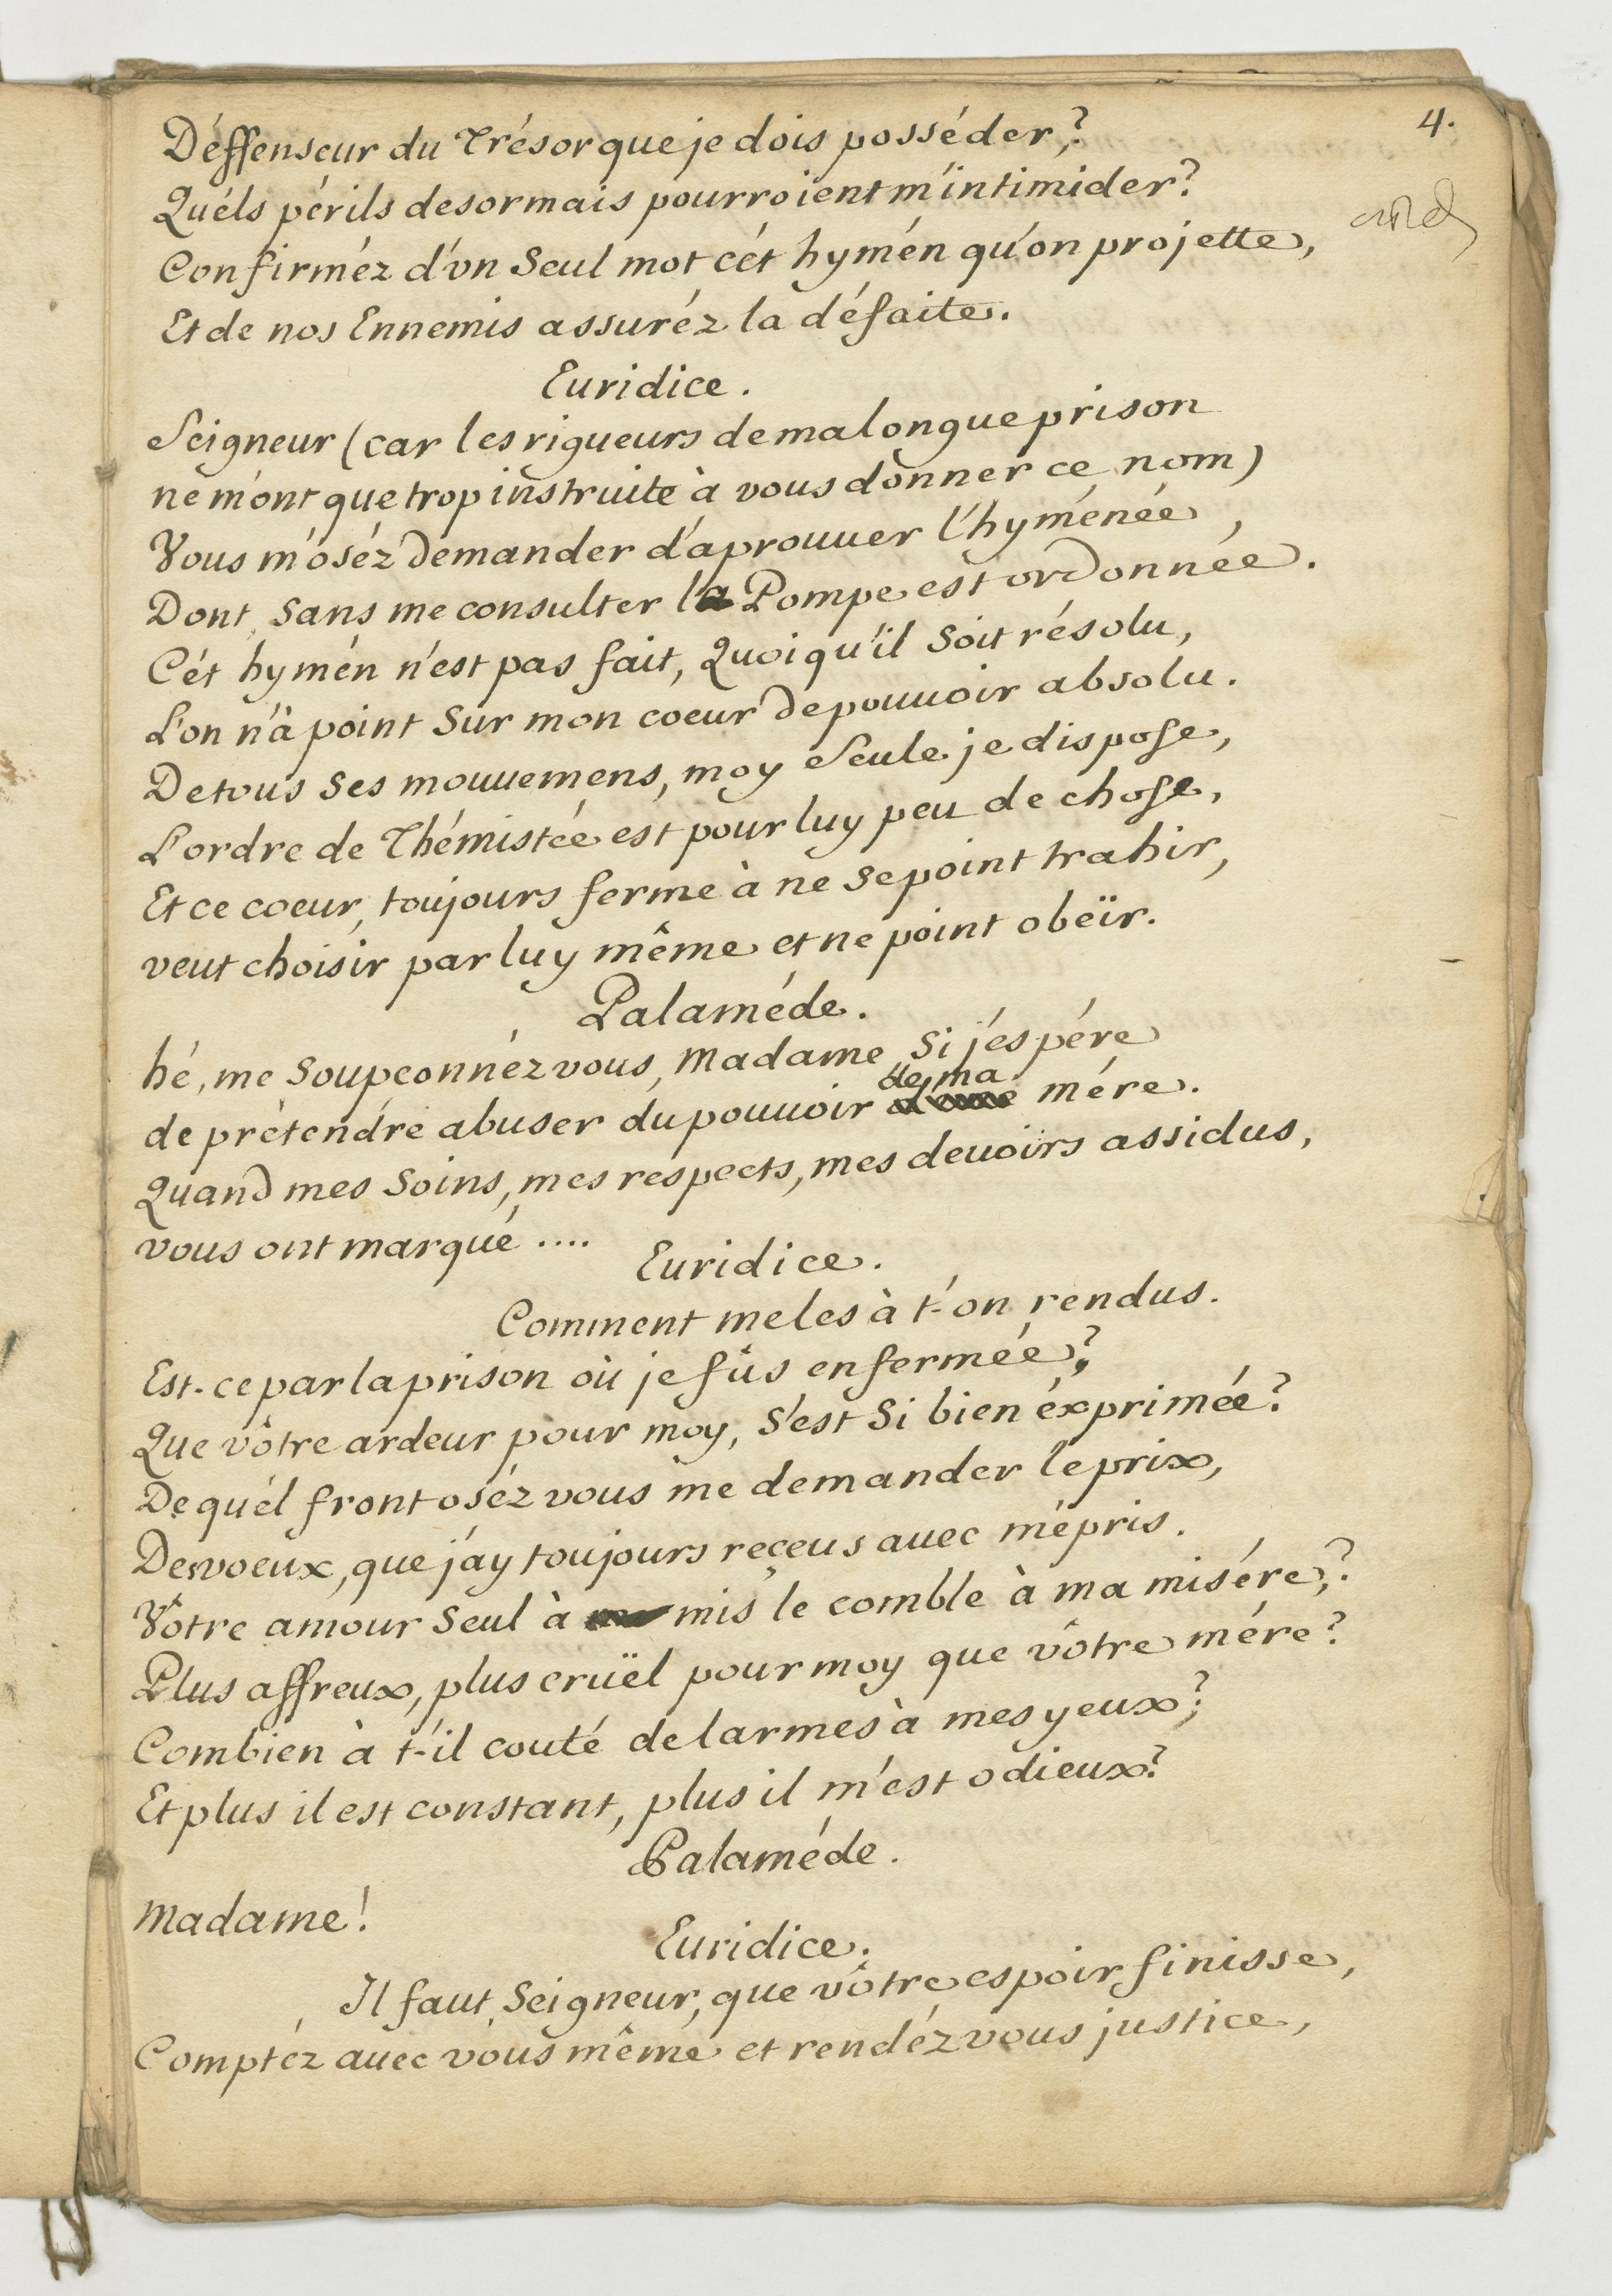 4.
Déffenseur du Trésor que je dois posséder,?
Quéls périls desormais pourroient m'intimider?
Confirméz d'vn Seul mot cét hymén qu'on projette,
Et de nos Ennemis assuréz la défaite.
Euridice.
Seigneur (car les rigueurs de ma longue prison
ne m'ont que trop instruite à vous donner ce nom)
Vous m'oséz demander d'aprouuer l'hyménée,
Dont, sans me consulter la Pompe est ordonnée.
Cét hymén n'est pas fait, Quoiqu'il Soit résolu,
L'on n'à point Sur mon coeur de pouuoir absolu.
De tous Ses mouuemens, moy Seule je dispose,
L'ordre de Thémistée est pour luy peu de chose,
Et ce coeur, toujours ferme à ne Se point trahir,
veut choisir par luy même et ne point obeïr.
Palaméde.
hé, me Soupçonnéz vous, Madame, Si j'espére
de prétendre abuser du pouuoir de ma mére.
Quand mes Soins, mes respects, mes deuoirs assidus,
vous ont marqué ....
Euridice.
Comment me les à t'-on rendus.
Est-ce par la prison où je fûs enfermée?
Que vôtre ardeur pour moy, S'est Si bien éxprimée?
De quél front oséz vous me demander le prix,
Des voeux, que j'ay toujours reçeus auec mépris.
Vôtre amour Seul à mis le comble à ma misére,?
Plus affreux, plus crüel pour moy que vôtre mére?
Combien à t'-il couté de larmes à mes yeux?
Et plus il est constant, plus il m'est odieux?
Palaméde.
Madame!
Euridice.
Il faut, Seigneur, que vôtre espoir finisse,
Comptéz auec vous même et rendéz vous justice,